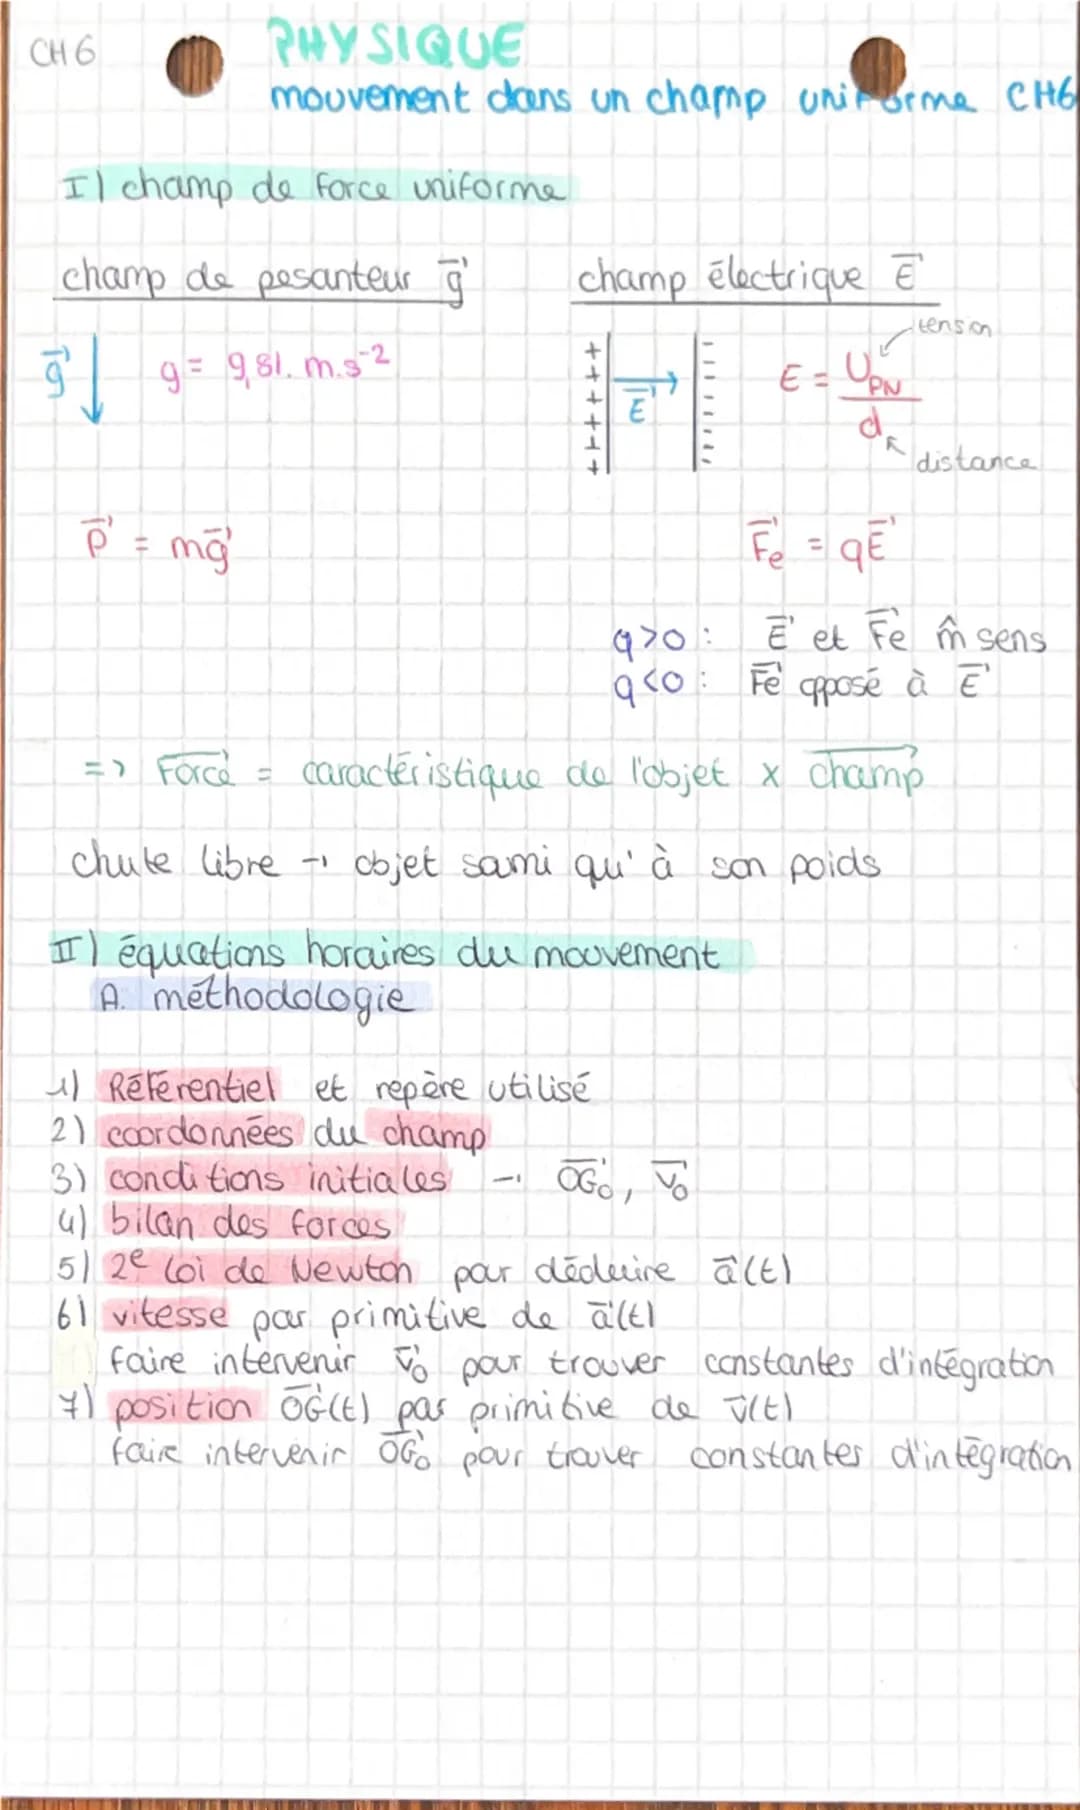 CH 6
PHYSIQUE
mouvement dans un champ uniforme CH6
I) champ de force uniforme
champ de pesanteur g⃗
champ électrique E⃗
g⃗ g = 9,81. m.s⁻²
+ + + + + + E⃗ - - - - - - -
E = U_PN / d
tension
distance
P⃗ = mg⃗
F⃗e = qE⃗
q>0 : E⃗ et F⃗e m̂ sens
q<0 : F⃗e opposé à E⃗
=> Force⃗ = caractéristique de l'objet x champ⃗
chute libre → objet sami qu'à son poids
II) équations horaires du mouvement
A. méthodologie
1) Référentiel et repère utilisé
2) coordonnées du champ
3) conditions initiales → OG₀⃗, v₀⃗
4) bilan des forces
5) 2e loi de Newton pour déduire a⃗(t)
6) vitesse par primitive de a⃗(t)
faire intervenir v₀⃗ pour trouver constantes d'intégration
7) position OG⃗(t) par primitive de v⃗(t)
faire intervenir OG₀⃗ pour trouver constantes d'intégration